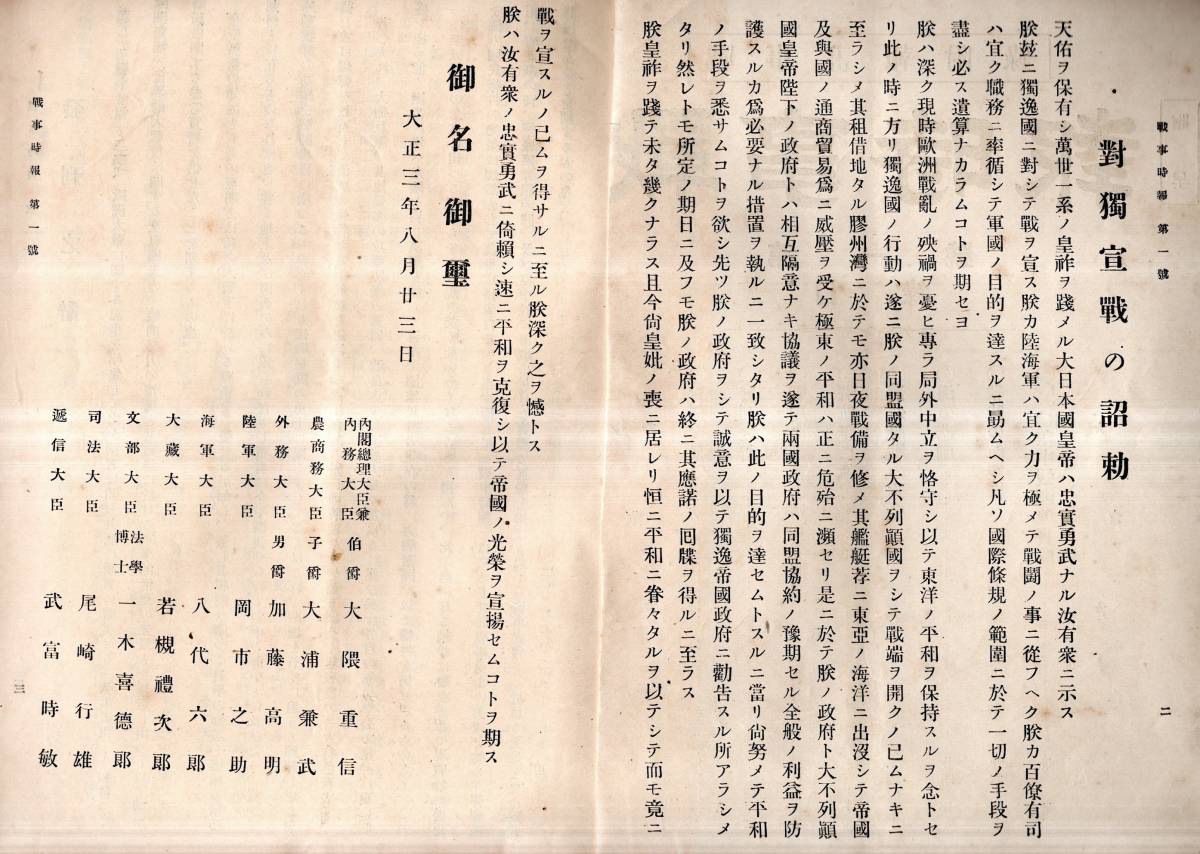 戰事時報 第一號
二
對獨宣戰の詔勅
天佑ヲ保有シ萬世一系ノ皇祚ヲ踐メル大日本國皇帝ハ忠實勇武ナル汝有衆ニ示ス
朕玆ニ獨逸國ニ對シテ戰ヲ宣ス朕カ陸海軍ハ宜ク力ヲ極メテ戰鬪ノ事ニ從フヘク朕カ百僚有司
ハ宜ク職務ニ率循シテ軍國ノ目的ヲ達スルニ勗ムヘシ凡ソ國際條規ノ範圍ニ於テ一切ノ手段ヲ
盡シ必ス遺算ナカラムコトヲ期セヨ
朕ハ深ク現時歐洲戰亂ノ殃禍ヲ憂ヒ專ラ局外中立ヲ恪守シ以テ東洋ノ平和ヲ保持スルヲ念トセ
リ此ノ時ニ方リ獨逸國ノ行動ハ遂ニ朕ノ同盟國タル大不列顚國ヲシテ戰端ヲ開クノ已ムナキニ
至ラシメ其租借地タル膠州灣ニ於テモ亦日夜戰備ヲ修メ其艦艇荐ニ東亞ノ海洋ニ出沒シテ帝國
及與國ノ通商貿易爲ニ威壓ヲ受ケ極東ノ平和ハ正ニ危殆ニ瀕セリ是ニ於テ朕ノ政府ト大不列顚
國皇帝陛下ノ政府トハ相互隔意ナキ協議ヲ遂テ兩國政府ハ同盟協約ノ豫期セル全般ノ利益ヲ防
護スルカ爲必要ナル措置ヲ執ルニ一致シタリ朕ハ此ノ目的ヲ達セムトスルニ當リ尙努メテ平和
ノ手段ヲ悉サムコトヲ欲シ先ツ朕ノ政府ヲシテ誠意ヲ以テ獨逸帝國政府ニ勸告スル所アラシメ
タリ然レトモ所定ノ期日ニ及フモ朕ノ政府ハ終ニ其應諾ノ回牒ヲ得ルニ至ラス
朕皇祚ヲ踐テ未タ幾クナラス且今尙皇妣ノ喪ニ居レリ恒ニ平和ニ眷々タルヲ以テシテ而モ竟ニ
戰ヲ宣スルノ已ムヲ得サルニ至ル朕深ク之ヲ憾トス
朕ハ汝有衆ノ忠實勇武ニ倚賴シ速ニ平和ヲ克復シ以テ帝國ノ光榮ヲ宣揚セムコトヲ期ス
御名御璽
大正三年八月廿三日
內閣總理大臣兼
內務大臣 伯爵 大隈重信
農商務大臣 子爵 大浦兼武
外務大臣 男爵 加藤高明
陸軍大臣 岡市之助
海軍大臣 八代六郞
大藏大臣 若槻禮次郞
文部大臣 法學博士 一木喜德郞
司法大臣 尾崎行雄
遞信大臣 武富時敏
戰事時報 第一號
三